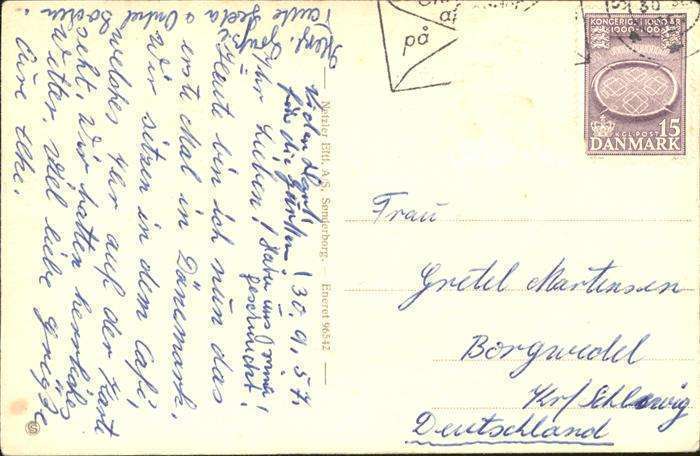 på
KONGERIGE I 1000 ÅR
KGL. POST 15
DANMARK
Frau
Gretel Martensen
Borgwedel
Kr/ Schleswig
Deutschland
Netzler Eftf. A.S. Sønderborg. Eneret 96542
30.9.57.
Ihr Lieben!
Heute bin ich nun das
erste Mal in Dänemark.
Wir sitzen in dem Café,
welches Ihr auf der Karte
seht. Wir hatten herrliches
Wetter. Viel liebe Grüße
Eure Elke.
Herzl. Grüße
Tante Greta u Onkel
Vielen Dank
für die
Habe uns
geschmeckt!